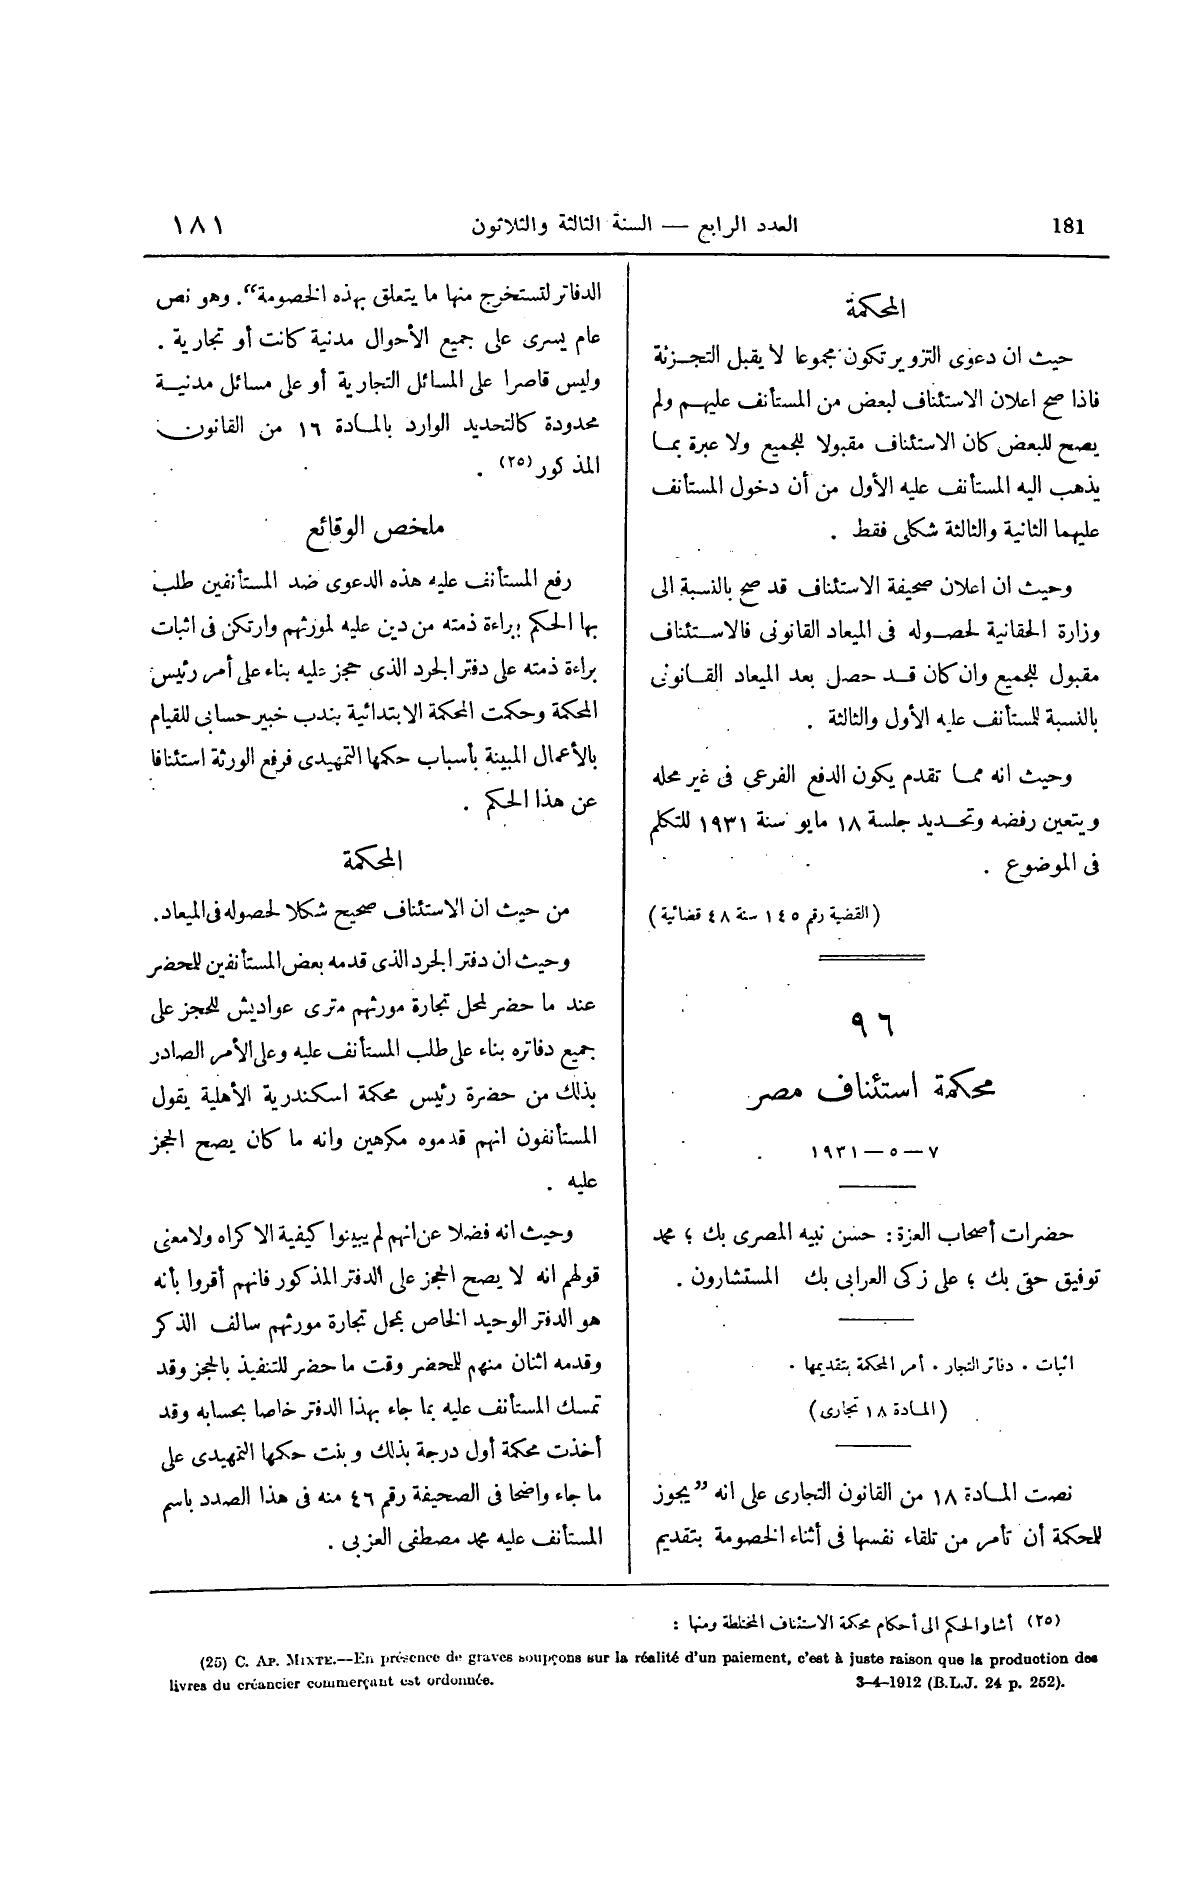 181 العدد الرابع — السنة الثالثة والثلاثون ١٨١
المحكمة
حيث ان دعوى التزوير تكون مجموعا لا يقبل التجزئة
فاذا صح اعلان الاستئناف لبعض من المستأنف عليهم ولم
يصح للبعض كان الاستئناف مقبولا للجميع ولا عبرة بما
يذهب اليه المستأنف عليه الأول من أن دخول المستأنف
عليهما الثانية والثالثة شكلى فقط .
وحيث ان اعلان صحيفة الاستئناف قد صح بالنسبة الى
وزارة الحقانية لحصوله فى الميعاد القانونى فالاستئناف
مقبول للجميع وان كان قد حصل بعد الميعاد القانونى
بالنسبة للمستأنف عليه الأول والثالثة .
وحيث انه مما تقدم يكون الدفع الفرعى فى غير محله
ويتعين رفضه وتحديد جلسة ١٨ مايو سنة ١٩٣١ للتكلم
فى الموضوع .
(القضية رقم ١٤٥ سنة ٤٨ قضائية)
٩٦
محكمة استئناف مصر
٧ — ٥ — ١٩٣١
حضرات أصحاب العزة : حسن نبيه المصرى بك ؛ محمد
توفيق حقى بك ؛ على زكى العرابى بك المستشارون .
اثبات . دفاتر التجار . أمر المحكمة بتقديمها .
(المادة ١٨ تجارى)
نصت المادة ١٨ من القانون التجارى على انه ”يجوز
للمحكمة أن تأمر من تلقاء نفسها فى أثناء الخصومة بتقديم
الدفاتر لتستخرج منها ما يتعلق بهذه الخصومة“. وهو نص
عام يسرى على جميع الأحوال مدنية كانت أو تجارية .
وليس قاصرا على المسائل التجارية أو على مسائل مدنية
محدودة كالتحديد الوارد بالمادة ١٦ من القانون
المذكور (٢٥) .
ملخص الوقائع
رفع المستأنف عليه هذه الدعوى ضد المستأنفين طلب
بها الحكم ببراءة ذمته من دين عليه لمورثهم وارتكن فى اثبات
براءة ذمته على دفتر الجرد الذى حجز عليه بناء على أمر رئيس
المحكمة وحكمت المحكمة الابتدائية بندب خبير حسابى للقيام
بالأعمال المبينة بأسباب حكمها التمهيدى فرفع الورثة استئنافا
عن هذا الحكم .
المحكمة
من حيث ان الاستئناف صحيح شكلا لحصوله فى الميعاد.
وحيث ان دفتر الجرد الذى قدمه بعض المستأنفين للمحضر
عند ما حضر لمحل تجارة مورثهم مترى عواديش للحجز على
جميع دفاتره بناء على طلب المستأنف عليه وعلى الأمر الصادر
بذلك من حضرة رئيس محكمة اسكندرية الأهلية يقول
المستأنفون انهم قدموه مكرهين وانه ما كان يصح الحجز
عليه .
وحيث انه فضلا عن انهم لم يبينوا كيفية الاكراه ولامعنى
قولهم انه لا يصح الحجز على الدفتر المذكور فانهم أقروا بأنه
هو الدفتر الوحيد الخاص بمحل تجارة مورثهم سالف الذكر
وقدمه اثنان منهم للمحضر وقت ما حضر للتنفيذ بالحجز وقد
تمسك المستأنف عليه بما جاء بهذا الدفتر خاصا بحسابه وقد
أخذت محكمة أول درجة بذلك وبنت حكمها التمهيدى على
ما جاء واضحا فى الصحيفة رقم ٤٦ منه فى هذا الصدد باسم
المستأنف عليه محمد مصطفى العزبى .
(٢٥) أشار الحكم الى أحكام محكمة الاستئناف المختلطة ومنها :
(25) C. AP. MIXTE.—En présence de graves soupçons sur la réalité d'un paiement, c'est à juste raison que la production des
livres du créancier commerçant est ordonnée. 3-4-1912 (B.L.J. 24 p. 252).